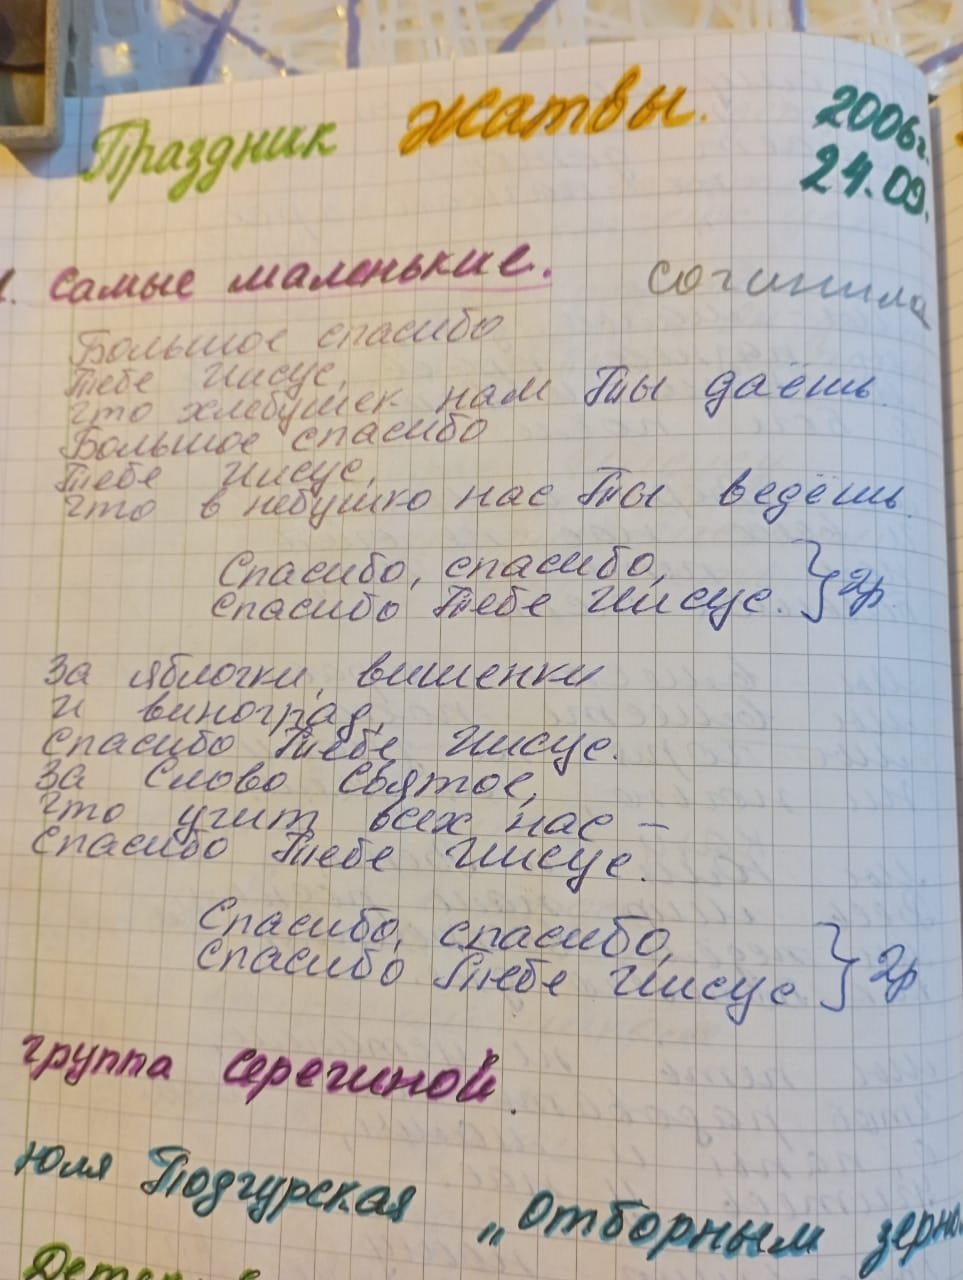 Праздник Жатвы. 2006г.
24.09.
1. Самые маленькие. сочинила
Большое спасибо
Тебе Иисус,
что хлебушек нам Ты даёшь.
Большое спасибо
Тебе Иисус,
что в небушко нас Ты ведёшь.
Спасибо, спасибо,
спасибо Тебе Иисус. } 2р.
За яблочки, вишенки
и виноград,
спасибо Тебе Иисус.
За Слово Святое,
что учит всех нас –
спасибо Тебе Иисус.
Спасибо, спасибо,
спасибо Тебе Иисус } 2р
группа Серегиной.
Юля Подгурская „Отборным